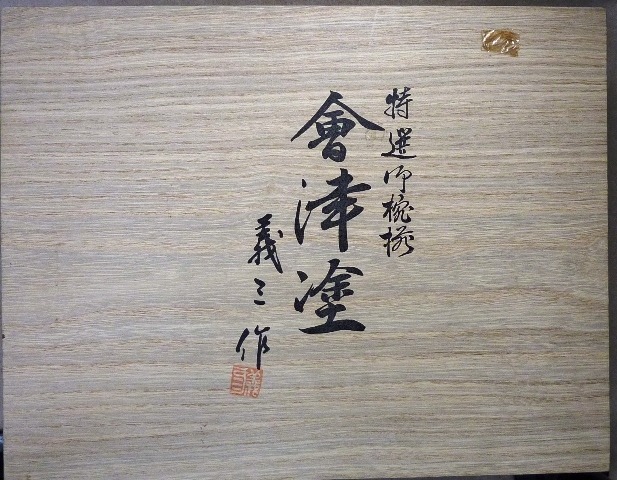 特選御椀揃
會津塗
義三作